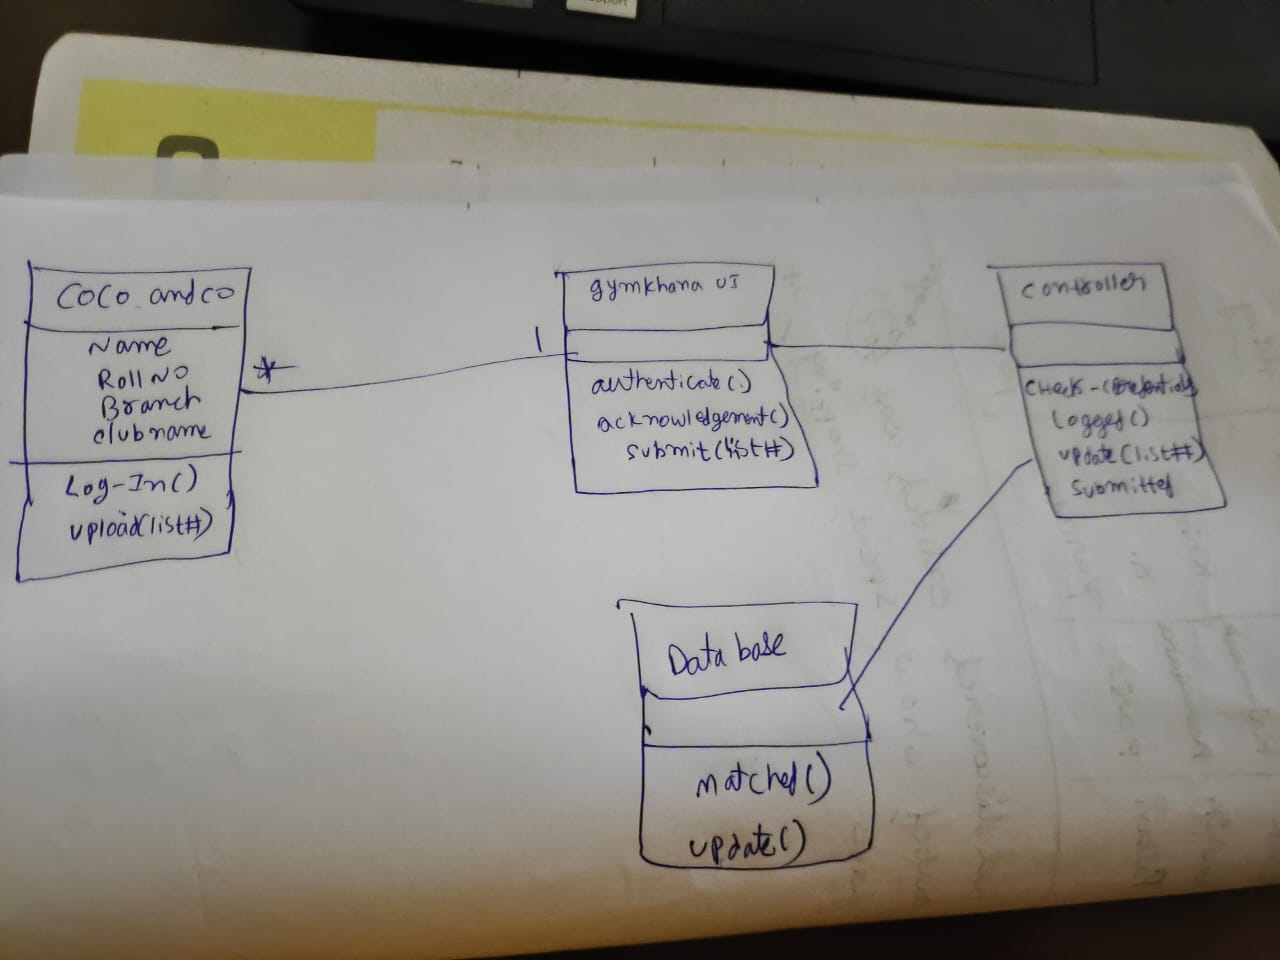 COCO and CO
Name
Roll NO
Branch
clubname
Log-In()
upload(list#)
*
1
gymkhana UI
authenticate()
acknowledgement()
submit(list#)
controller
logged()
update(list#)
submitted
Data base
matched()
update()